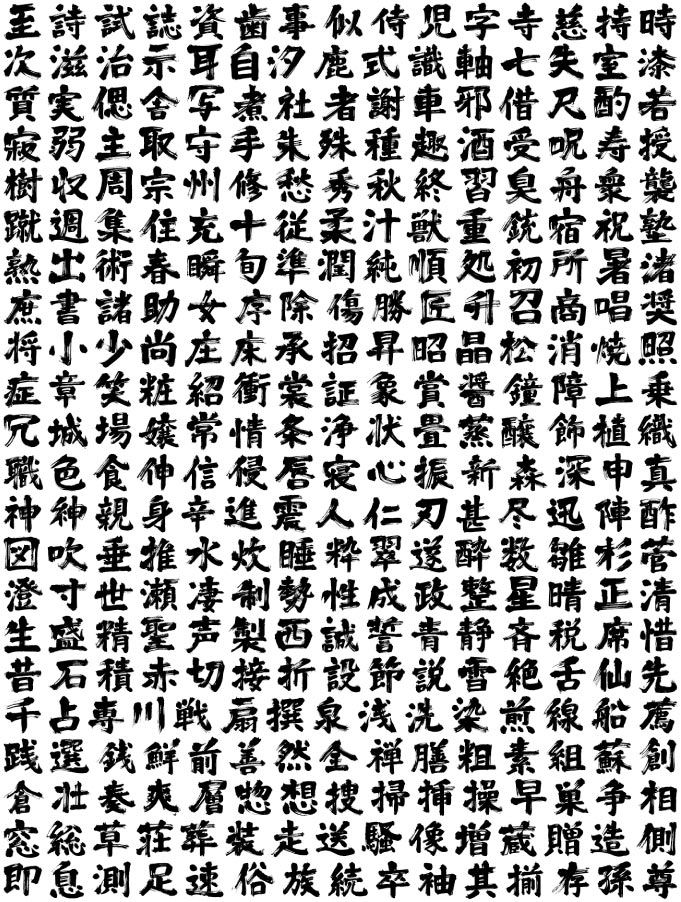 至詩試誌資歯事似侍児字寺慈持時
次滋治示耳自汐鹿式識軸七失室漆
質実偲舎写煮社者謝車邪借尺酌若
寂弱主取守手朱殊種趣酒受呪寿授
樹収周宗州修愁秀秋終習臭舟衆襲
蹴週集住充十従柔汁獣重銃宿祝塾
熟出術春瞬旬準潤純順処初所暑渚
庶書諸助女序除傷勝匠升召商唱奨
将小少尚庄床承招昇昭晶松消焼照
症章笑粧紹衝裳証象賞醤鐘障上乗
冗城場嬢常情条浄状畳蒸醸飾植織
職色食伸信侵唇寝心振新森深申真
神神親身辛進震人仁刃甚尽迅陣酢
図吹垂推水炊睡粋翠遂酔数雛杉菅
澄寸世瀬凄制勢性成政整星晴正清
生盛精聖声製西誠誓青静斉税席惜
昔石積赤切接折設節説雪絶舌仙先
千占専川戦扇撰泉浅洗染煎線船薦
践選銭鮮前善然全禅膳粗素組蘇創
倉壮奏爽層惣想捜掃挿操早巣争相
窓総草荘葬装走送騒像増蔵贈造側
即息測足速俗族続卒袖其揃存孫尊